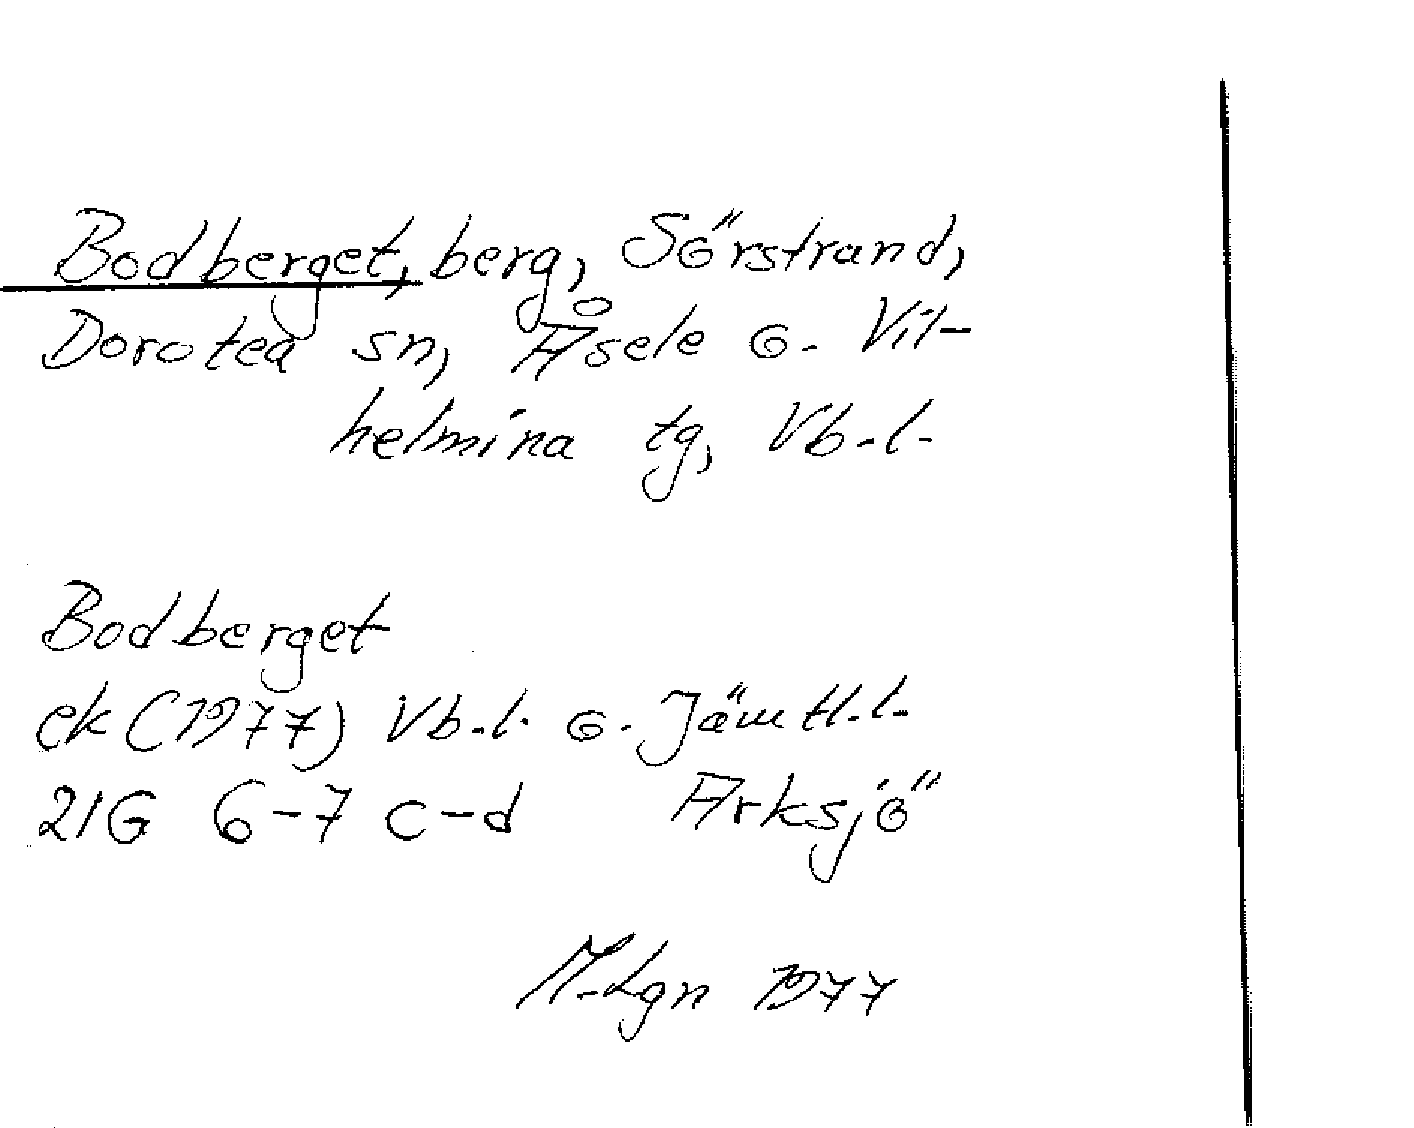 Bodberget, berg, Sörstrand,
Dorotea sn, Åsele o. Vil-
helmina tg, Vb.l.
Bodberget
ek (1977) Vb.l. o. Jämtl.l.
21G 6-7 c-d Arksjö
M.Lgn 1977